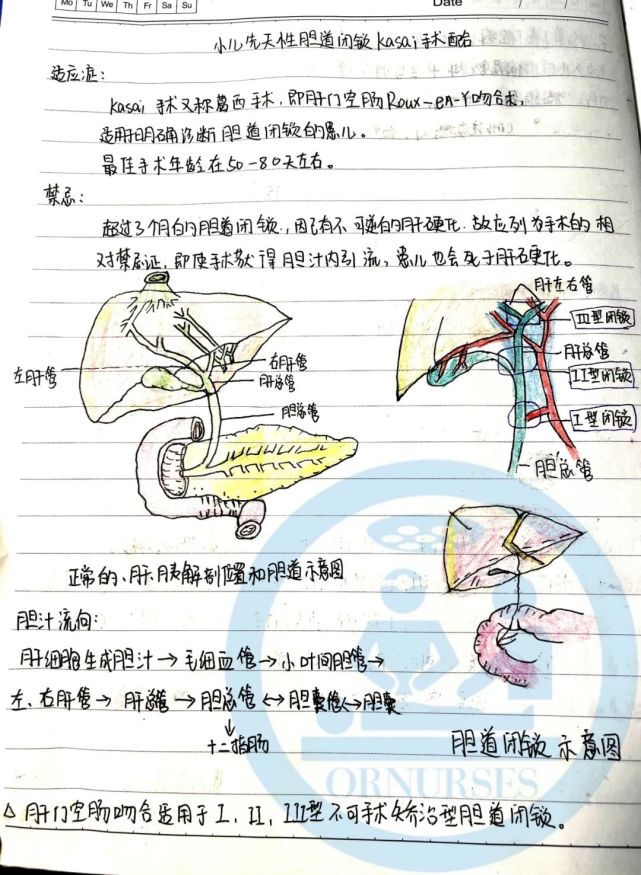 Mo Tu We Th Fr Sa Su
Date
小儿先天性胆道闭锁Kasai手术配合
适应症：
Kasai手术又称葛西手术，即肝门空肠Roux-en-Y吻合术，
适用于明确诊断胆道闭锁的患儿。
最佳手术年龄在50-80天左右。
禁忌：
超过3个月的胆道闭锁，因已有不可逆的肝硬化，故应列为手术的相
对禁忌证，即使手术获得胆汁内引流，患儿也会死于肝硬化。
左肝管
右肝管
肝总管
胆总管
肝左右管
III型闭锁
肝总管
II型闭锁
I型闭锁
胆总管
正常的、肝、胰解剖位置和胆道示意图
胆汁流向：
肝细胞生成胆汁→毛细血管→小叶间胆管→
左、右肝管→肝总管→胆总管↔胆囊管↔胆囊
↓
十二指肠
胆道闭锁示意图
ORNURSES
△肝门空肠吻合适用于I，II，III型不可手术矫治型胆道闭锁。